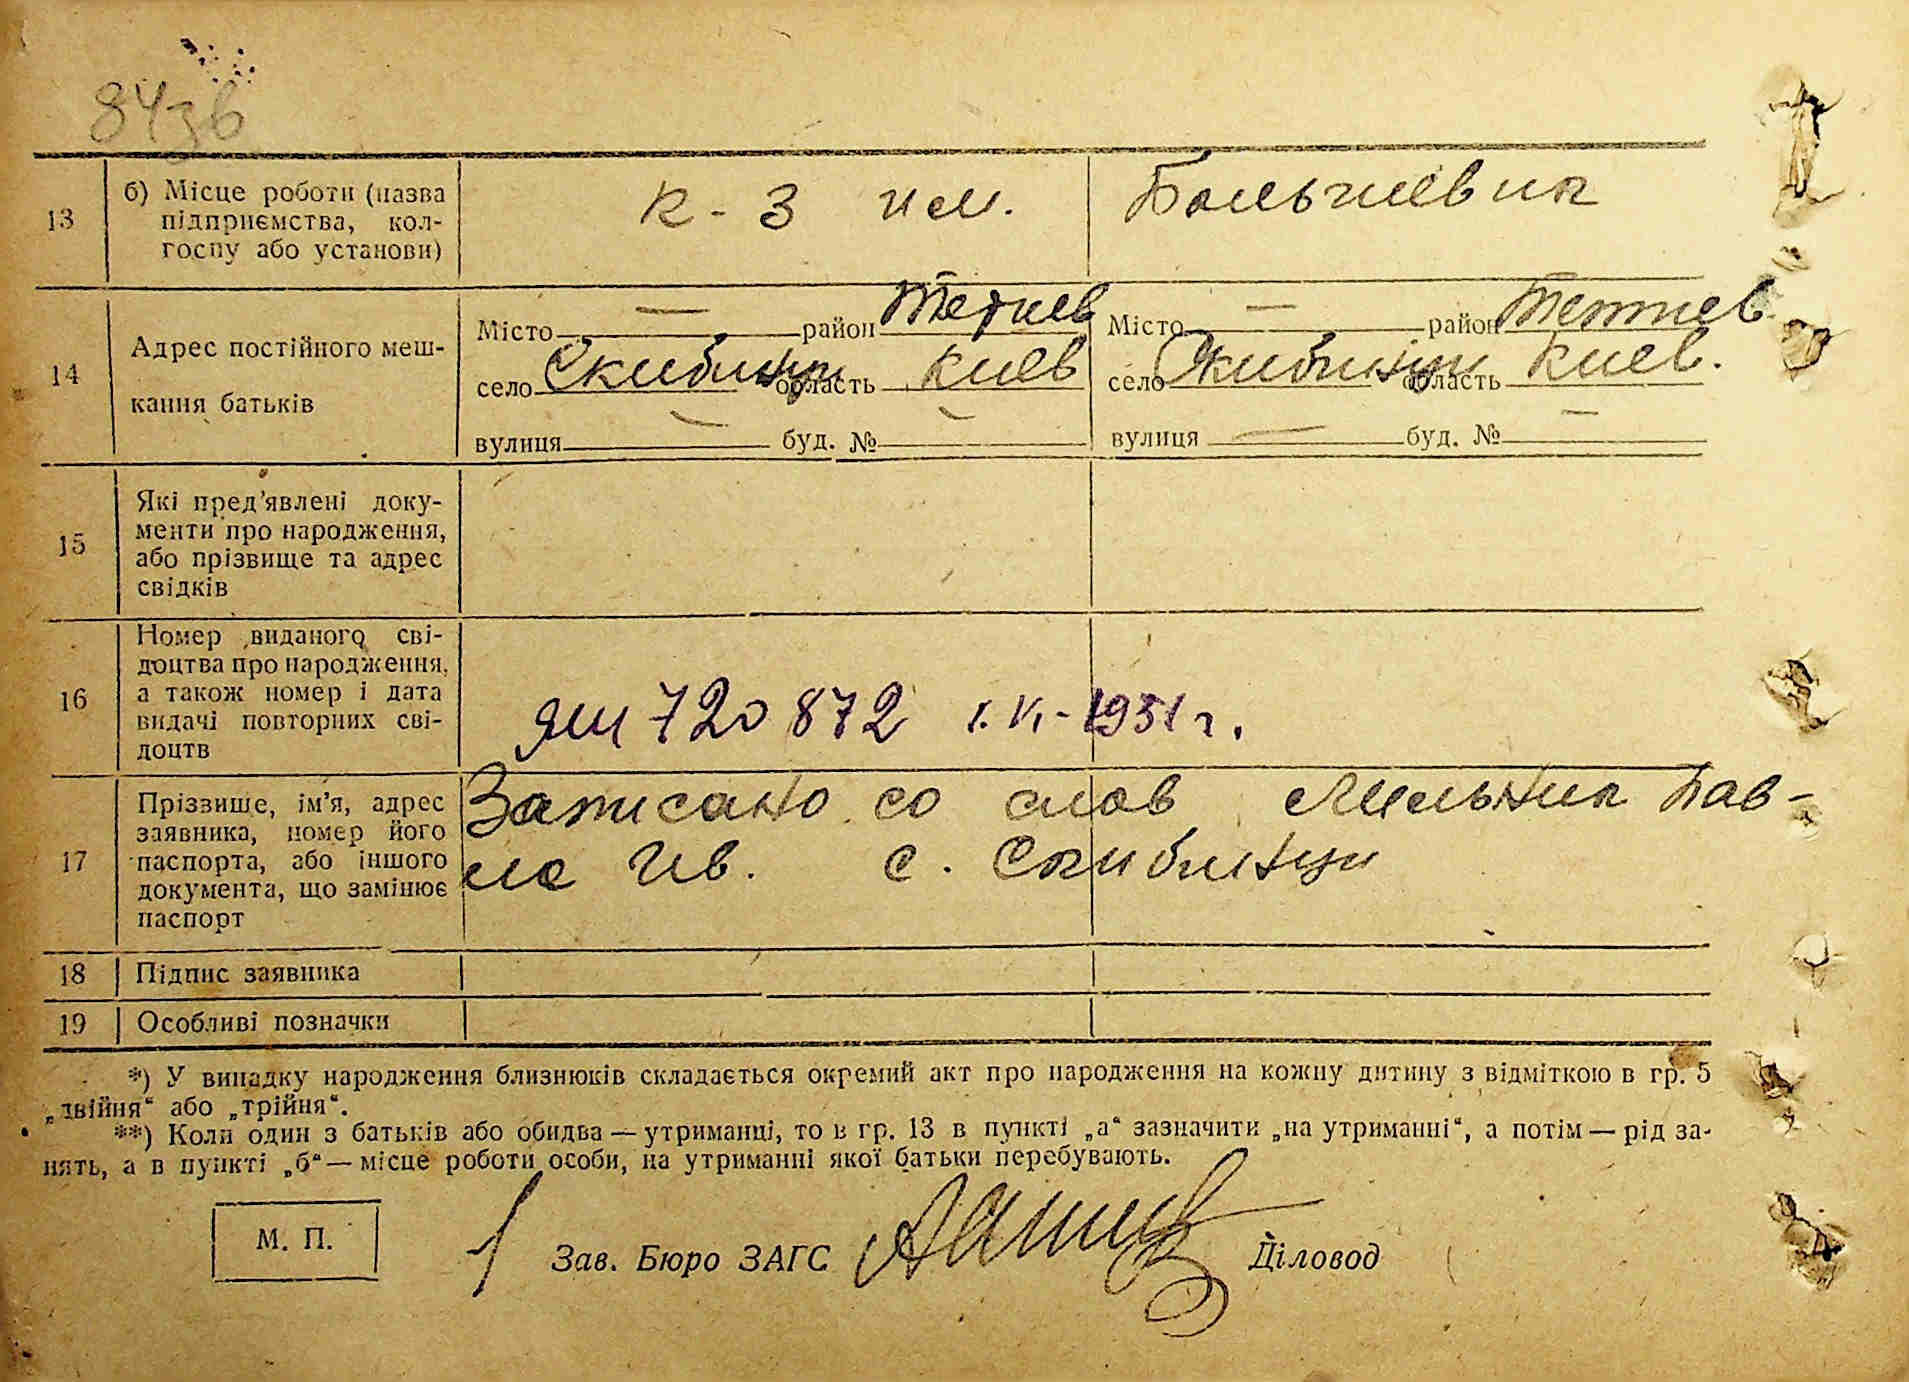 843б
13 б) Місце роботи (назва
підприємства, кол-
госпу або установи)
к-з им. Большевик
14 Адрес постійного меш-
кання батьків
Місто — район Тетиев Місто — район Тетиев
село Скибинци область Киев село Скибинци область Киев.
вулиця — буд. № — вулиця — буд. № —
15 Які пред'явлені доку-
менти про народження,
або прізвище та адрес
свідків
16 Номер виданого сві-
доцтва про народження,
а також номер і дата
видачі повторних сві-
доцтв
ЯШ 720872 1.VI-1951 г.
17 Прізвище, ім'я, адрес
заявника, номер його
паспорта, або іншого
документа, що замінює
паспорт
Записано со слов Мельник Пав-
ла Ив. с. Скибинци
18 Підпис заявника
19 Особливі позначки
*) У випадку народження близнюків складається окремий акт про народження на кожну дитину з відміткою в гр. 5
„двійня“ або „трійня“.
**) Коли один з батьків або обидва — утриманці, то в гр. 13 в пункті „а“ зазначити „на утриманні“, а потім — рід за-
нять, а в пункті „б“ — місце роботи особи, на утриманні якої батьки перебувають.
М. П. Зав. Бюро ЗАГС Діловод